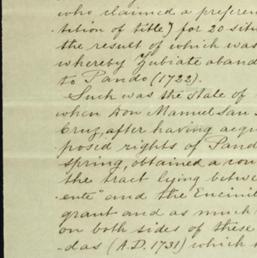 who claimed a preferen
tition of title) for 20 siti
the result of which was
whereby Zubiate aband
to Pando (1722).
Such was the state of
when Don Manuel San J
Cruz, after having acqu
posed rights of Pand
spring, obtained a con
the tract lying betwe
ente" and the Encinil
grant and as much
on both sides of these
das (A.D. 1731) which